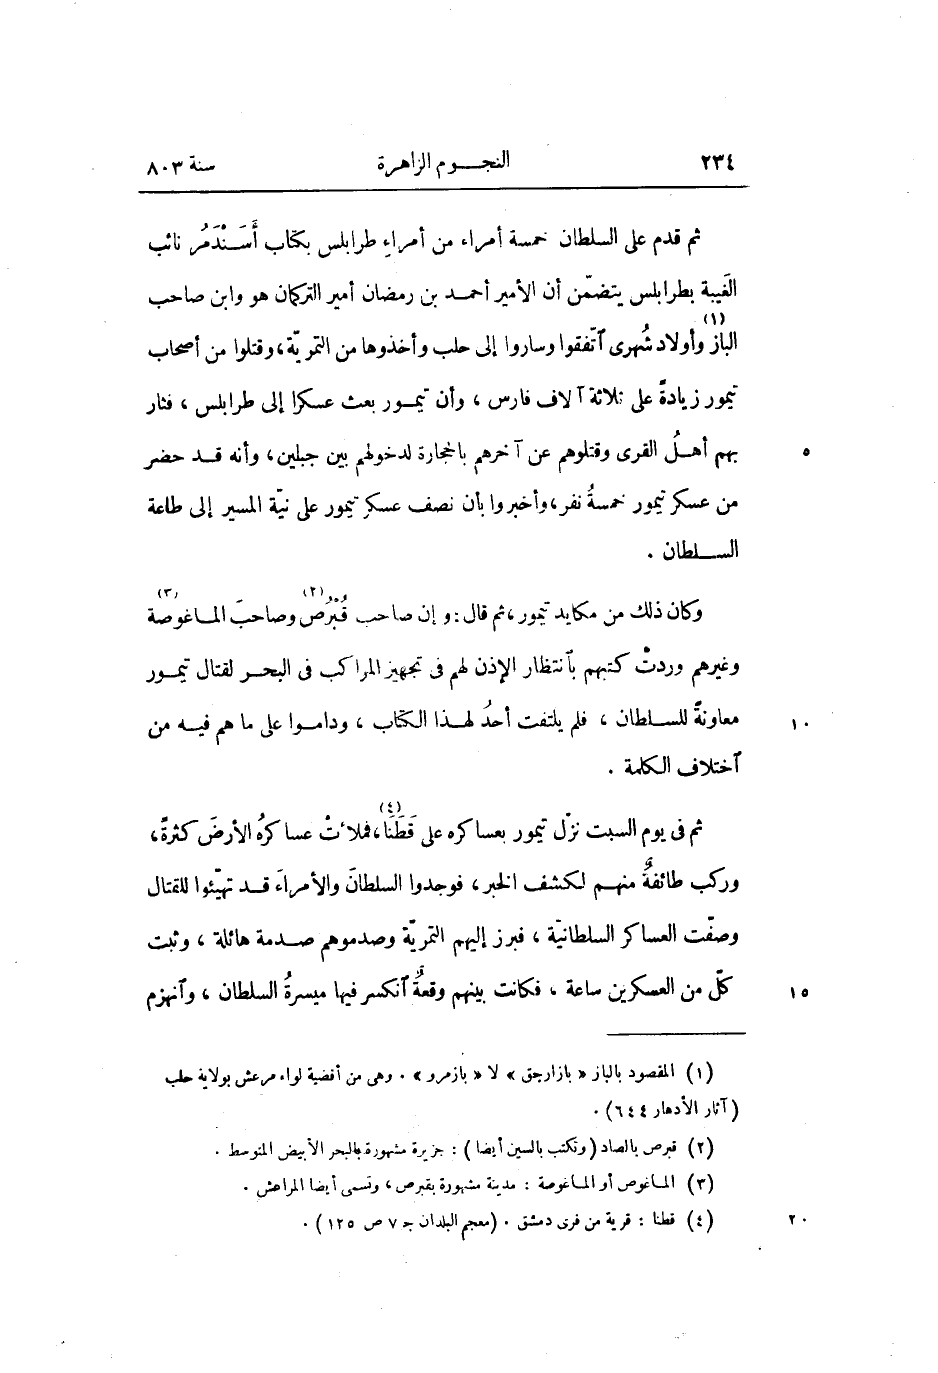 ٢٣٤ النجوم الزاهرة سنة ٨٠٣
ثم قدم على السلطان خمسة أمراء من أمراءِ طرابلس بكتاب أَسَنْدَمُر نائب
الغَيبة بطرابلس يتضمّن أن الأمير أحمد بن رمضان أمير التركمان هو وابن صاحب
الباز(١) وأولاد شُهرى ٱتّفقوا وساروا إلى حلب وأخذوها من التمريّة، وقتلوا من أصحاب
تيمور زيادةً على ثلاثة آلاف فارس، وأن تيمور بعث عسكرا إلى طرابلس، فثار
٥ بهم أهلُ القرى وقتلوهم عن آخرهم بالحجارة لدخولهم بين جبلين، وأنه قد حضر
من عسكر تيمور خمسةُ نفر، وأخبروا بأن نصف عسكر تيمور على نيّة المسير إلى طاعة
السلطان.
وكان ذلك من مكايد تيمور، ثم قال: وإن صاحب قُبْرُص(٢) وصاحبَ الماغوصة(٣)
وغيرهم وردتْ كتبهم بٱنتظار الإذن لهم فى تجهيز المراكب فى البحر لقتال تيمور
١٠ معاونةً للسلطان، فلم يلتفت أحدُ لهذا الكتاب، وداموا على ما هم فيه من
ٱختلاف الكلمة.
ثم فى يوم السبت نزّل تيمور بعساكره على قَطَنَا(٤)، فملأتْ عساكرُه الأرضَ كثرةً،
وركب طائفةٌ منهم لكشف الخبر، فوجدوا السلطانَ والأمراءَ قد تهيّئوا للقتال
وصفّت العساكر السلطانيّة، فبرز إليهم التمريّة وصدموهم صدمة هائلة، وثبت
١٥ كلّ من العسكرين ساعة، فكانت بينهم وقعةٌ ٱنكسر فيها ميسرةُ السلطان، وٱنهزم
(١) المقصود بالباز « بازارجق » لا « بازمرو ». وهى من أقضية لواء مرعش بولاية حلب
(آثار الأدهار ٦٤٤).
(٢) قبرص بالصاد (وتكتب بالسين أيضا): جزيرة مشهورة بالبحر الأبيض المتوسط.
(٣) الماغوص أو الماغوصة: مدينة مشهورة بقبرص، وتسمى أيضا المراعش.
٢٠ (٤) قطنا: قرية من قرى دمشق. (معجم البلدان جـ ٧ ص ١٢٥).